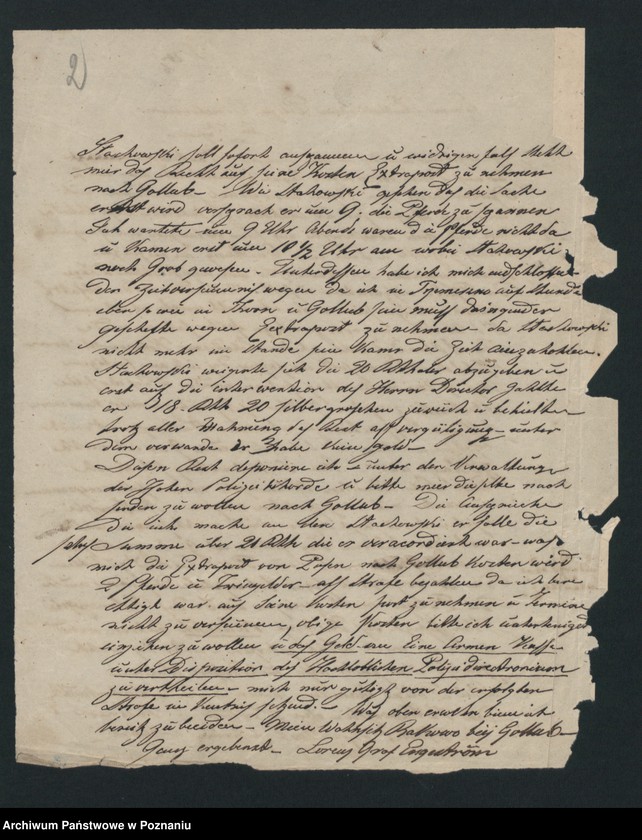 2
Stackowski soll sofort anspannen u widrigen fals steht
mir das Recht auf seine Kosten Extrapost zu nehmen
nach Gollub - Wie Stakowski gesehen das die Sache
ernst wird versprach er um 9 die Pferde zu spannen
Ich wartete um 9 Uhr Abends waren die Pferde nicht da
u kamen erst um 10 1/2 Uhr an wobei Stakowski
noch Grob gewesen - Unterdessen habe ich mich entschlossen
der Zeitversäumnis wegen da ich in Trzmeszno auf Stunde
eben so wie in Thorn u Gollub sein muss dringender
geschefte wegen Extrapost zu nehmen - da Stackowski
nicht mehr im Stande sein kann die Zeit einzuholen.
Stackowski weigerte sich die 20 Rthaler abzugeben u
erst auf die intervention des Herrn Director zahlte
er 18 Rth 20 silbergroschen zurück u behielt
trotz aller Mahnung des Rest als vergütigung - unter
dem vorwande Er habe kein geld -
Diesen Rest deponiere ich unter der Verwaltung
der Hohen Polizeibehorde u bitte mir dieselbe nach
senden zu wollen nach Gollub - Die Ansprüche
die ich mache an den Stackowski er solle die
Summe über 21 Rth die er veracordirt war - was
mich die Extrapost von Posen nach Gollub kosten wird
2 Pferde u Trinkgelder - als Strafe bezahlen da ich bere
chtigt war auf seine Kosten post zu nehmen u Termine
nicht zu versäumen, obige Kosten bitte ich unterthenigst
einziehen zu wollen u das Geld an Eine Armen Kasse
unter Disposition des Hochlöblichen Polizeidirectorium
zu vertheilen - mich nur gütigst von der erfolgten
Strafe in Kentnis setzend. - Was oben erwehnt bin ich
bereit zu beeiden - Mein Wohnsitz bei Gollub -
Ganz ergebenst - Lorenz Graf Engeström
Archiwum Państwowe w Poznaniu